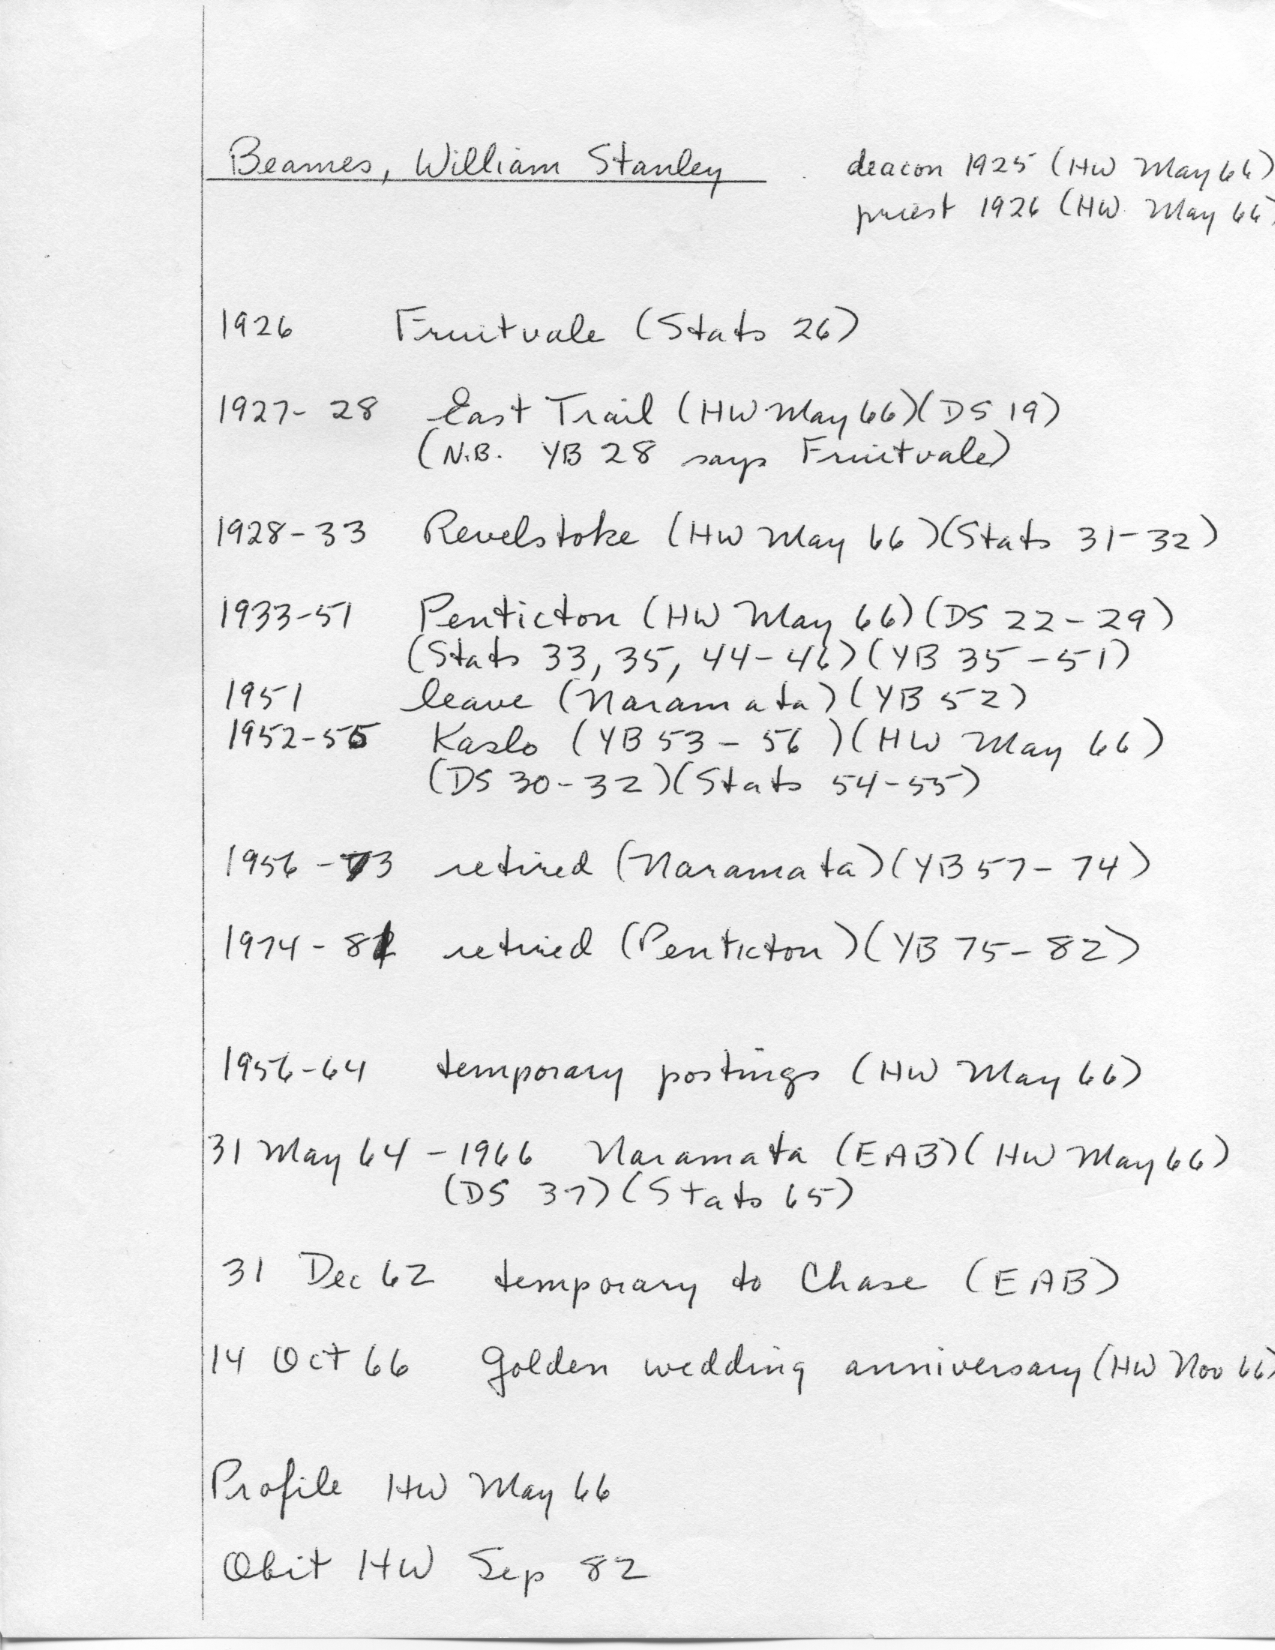 Beames, William Stanley deacon 1925 (HW May 66)
priest 1926 (HW May 66)
1926 Fruitvale (Stats 26)
1927-28 East Trail (HW May 66)(DS 19)
(N.B. YB 28 says Fruitvale)
1928-33 Revelstoke (HW May 66)(Stats 31-32)
1933-51 Penticton (HW May 66)(DS 22-29)
(Stats 33, 35, 44-46)(YB 35-51)
1951 leave (Naramata)(YB 52)
1952-55 Kaslo (YB 53-56)(HW May 66)
(DS 30-32)(Stats 54-55)
1956-73 retired (Naramata)(YB 57-74)
1974-82 retired (Penticton)(YB 75-82)
1956-64 temporary postings (HW May 66)
31 May 64 - 1966 Naramata (EAB)(HW May 66)
(DS 37)(Stats 65)
31 Dec 62 temporary to Chase (EAB)
14 Oct 66 Golden wedding anniversary (HW Nov 66)
Profile HW May 66
Obit HW Sep 82